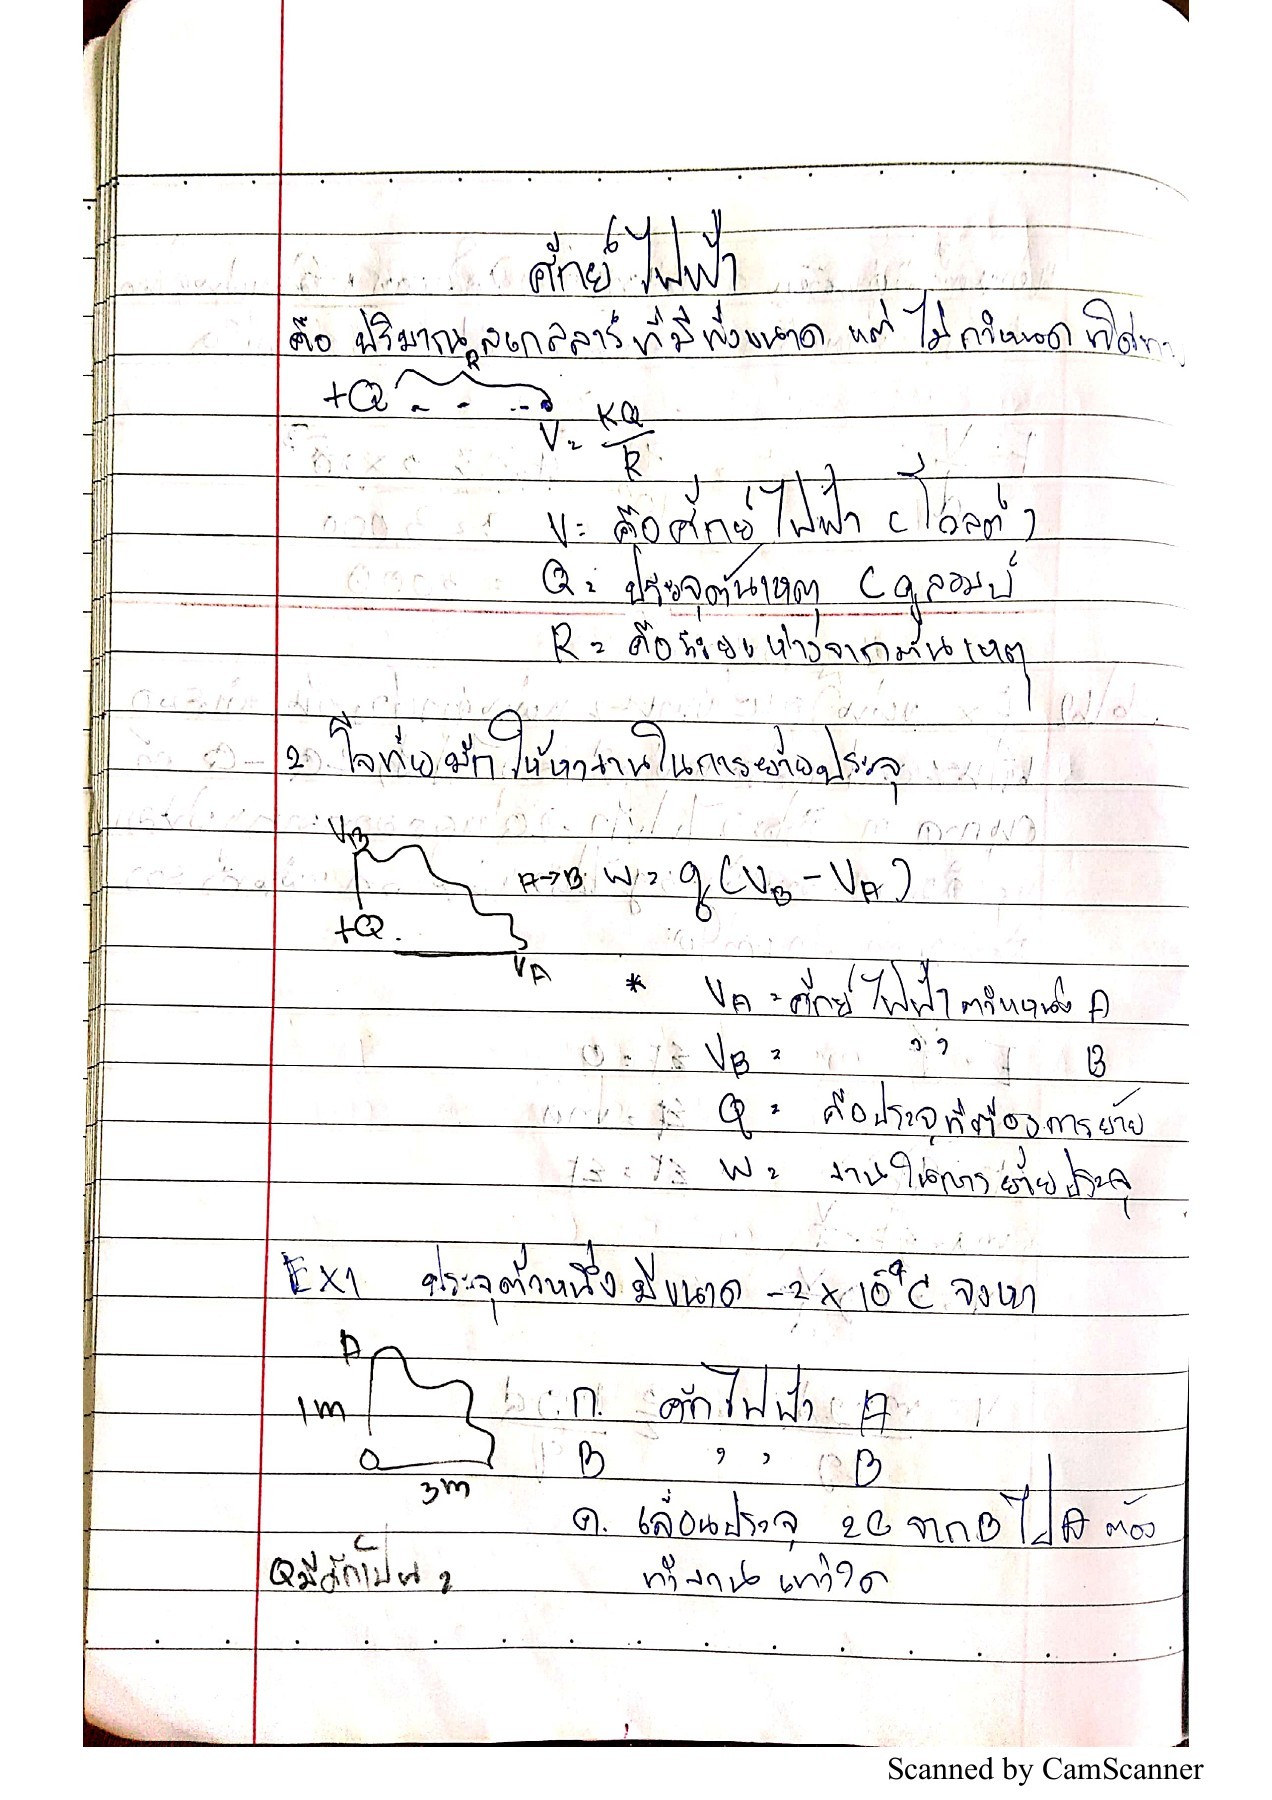 ศักย์ไฟฟ้า
คือ ปริมาณสเกลลาร์ที่มีทั้งขนาด แต่ ไม่กำหนด ทิศทาง
R
+Q
V = KQ/R
V = คือศักย์ไฟฟ้า (โวลต์)
Q = ประจุต้นเหตุ (คูลอมบ์
R = คือระยะห่างจากต้นเหตุ
2 โจทย์มักให้หางานในการย้ายประจุ
VB
A→B W = q(VB - VA)
+Q.
VA
* VA = ศักย์ไฟฟ้าตำแหน่ง A
VB = " B
Q = คือประจุที่ต้องการย้าย
W = งานในการย้ายประจุ
EX1 ประจุตัวหนึ่งมีขนาด -2 x 10⁻⁹C จงหา
A
1m ก. ศักไฟฟ้า A
Q B " B
3m
ค. เลื่อนประจุ 2C จาก B ไป A ต้อง
ทำงานเท่าใด